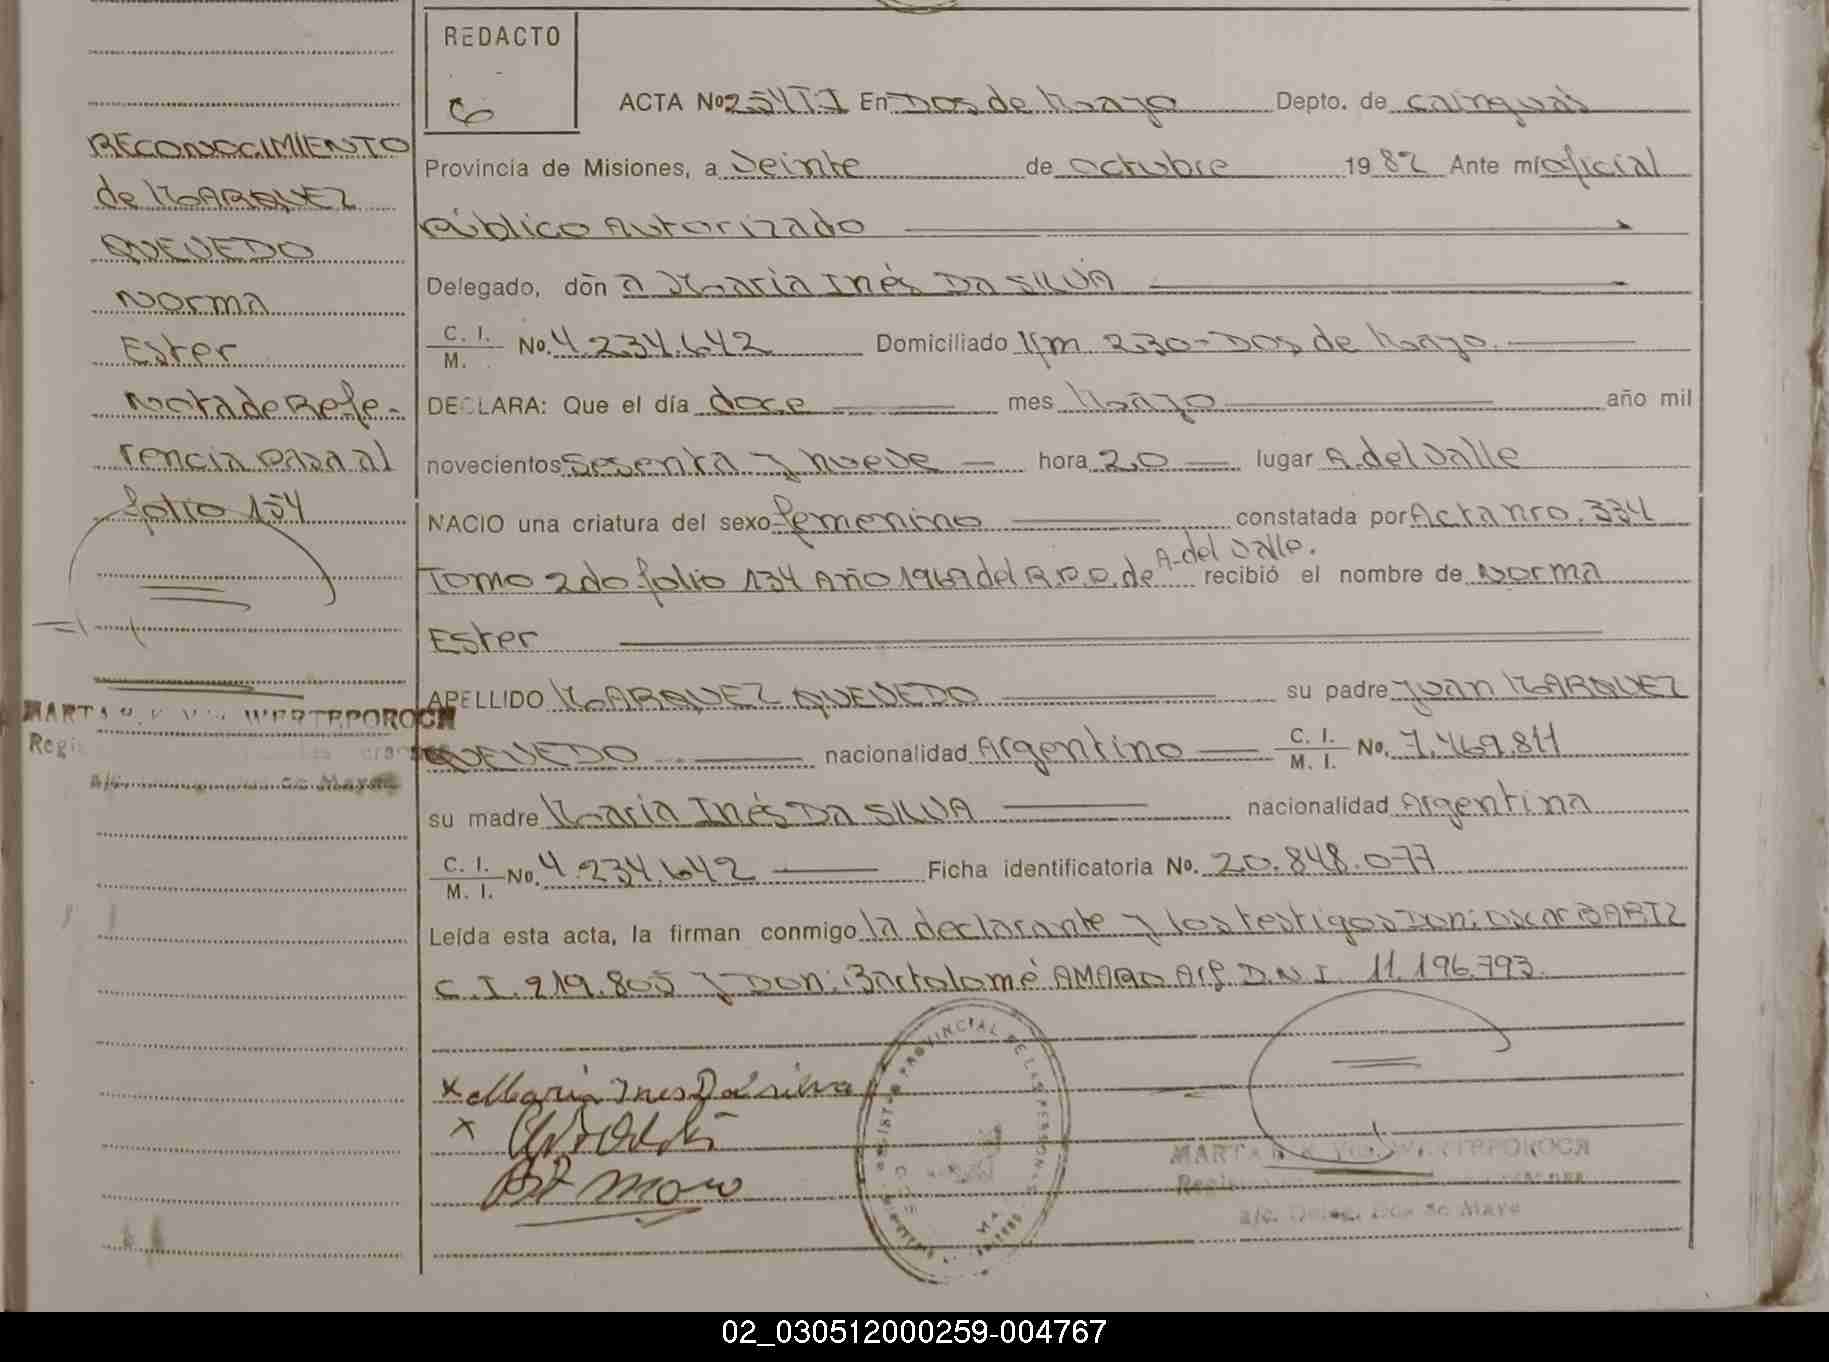 REDACTO
6
ACTA No 254TI En Dos de Mayo Depto. de Cainguás
RECONOCIMIENTO
de MARQUEZ
QUEVEDO
Norma
Ester
Nota de Refe-
rencia pasa al
folio 154
Provincia de Misiones, a Veinte de octubre 1982 Ante mi oficial
público Autorizado
Delegado, dōn a Maria Inés Da SILVA
C. I. M. No. 4.234.642 Domiciliado Km. 230 - Dos de Mayo.
DECLARA: Que el día doce mes Mayo año mil
novecientos sesenta y nueve hora 20 lugar A. del Valle
NACIO una criatura del sexo femenino constatada por Acta nro. 334
Tomo 2do folio 134 Año 1969 del R.P.P. de A. del Valle. recibió el nombre de Norma
Ester
APELLIDO MARQUEZ QUEVEDO su padre Juan MARQUEZ
QUEVEDO nacionalidad Argentino C. I. M. I. No. 7.469.811
su madre Maria Inés Da SILVA nacionalidad Argentina
C. I. M. I. No. 4.234.642 Ficha identificatoria No. 20.848.077
Leída esta acta, la firman conmigo la declarante y los testigos Don: Oscar BARTZ
C.I. 219.805 y Don: Bartolomé AMARO D.N.I. 11.196.793.
x Maria Ines Da silva
x
MARTA
a/c. Deleg. Dos de Mayo
02_030512000259-004767